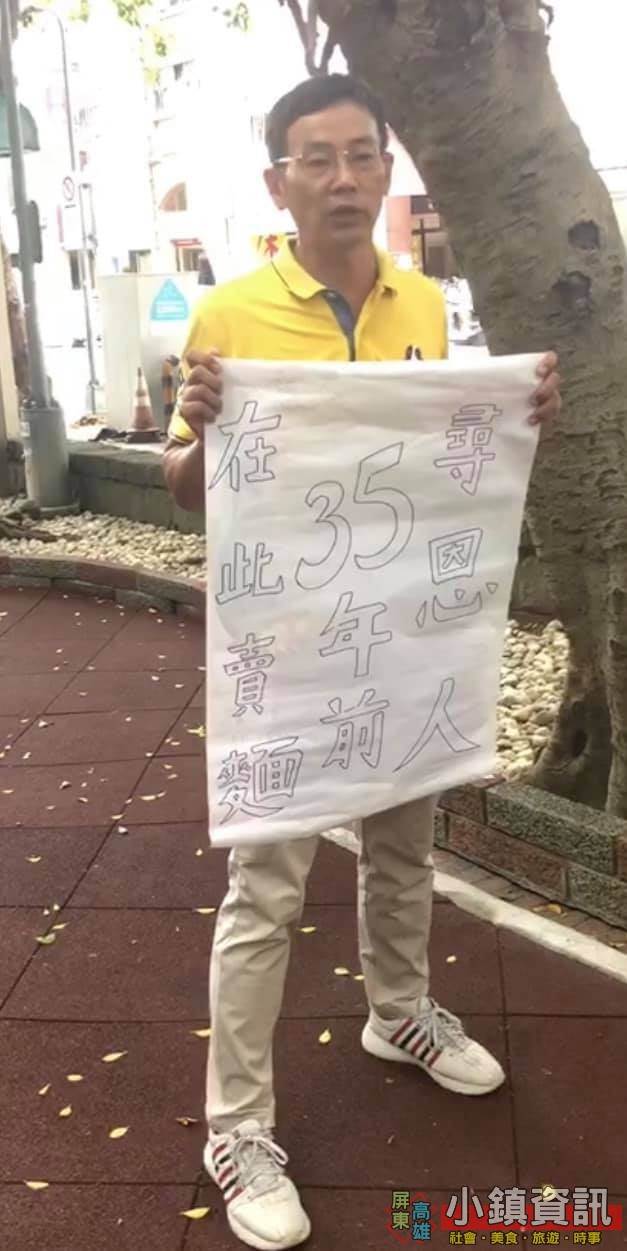 尋恩人
35年前
在此賣麵
屏東
高雄
小鎮資訊
社會・美食・旅遊・時事